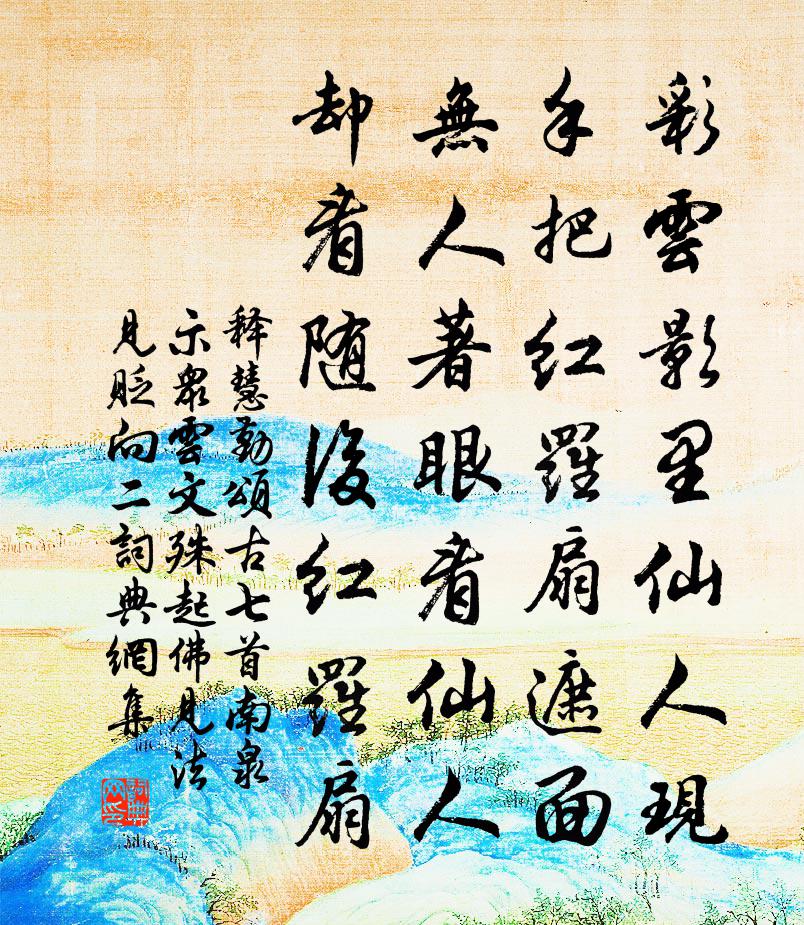 彩雲影里仙人現
手把红羅扇遮面
無人著眼看仙人
却看随後红羅扇
释慧勤頌古七首南泉
示衆雲文殊起佛見法
見貶向二詞典網集